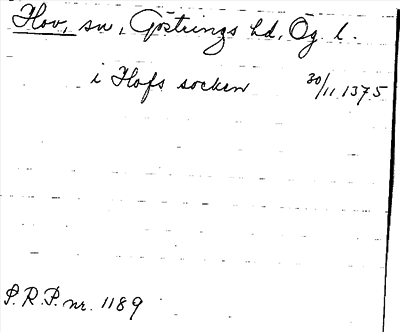 Hov, sn, Göstrings hd, Ög. l.
i Hofs socken 30/11 1375
P.R.P. nr. 1189